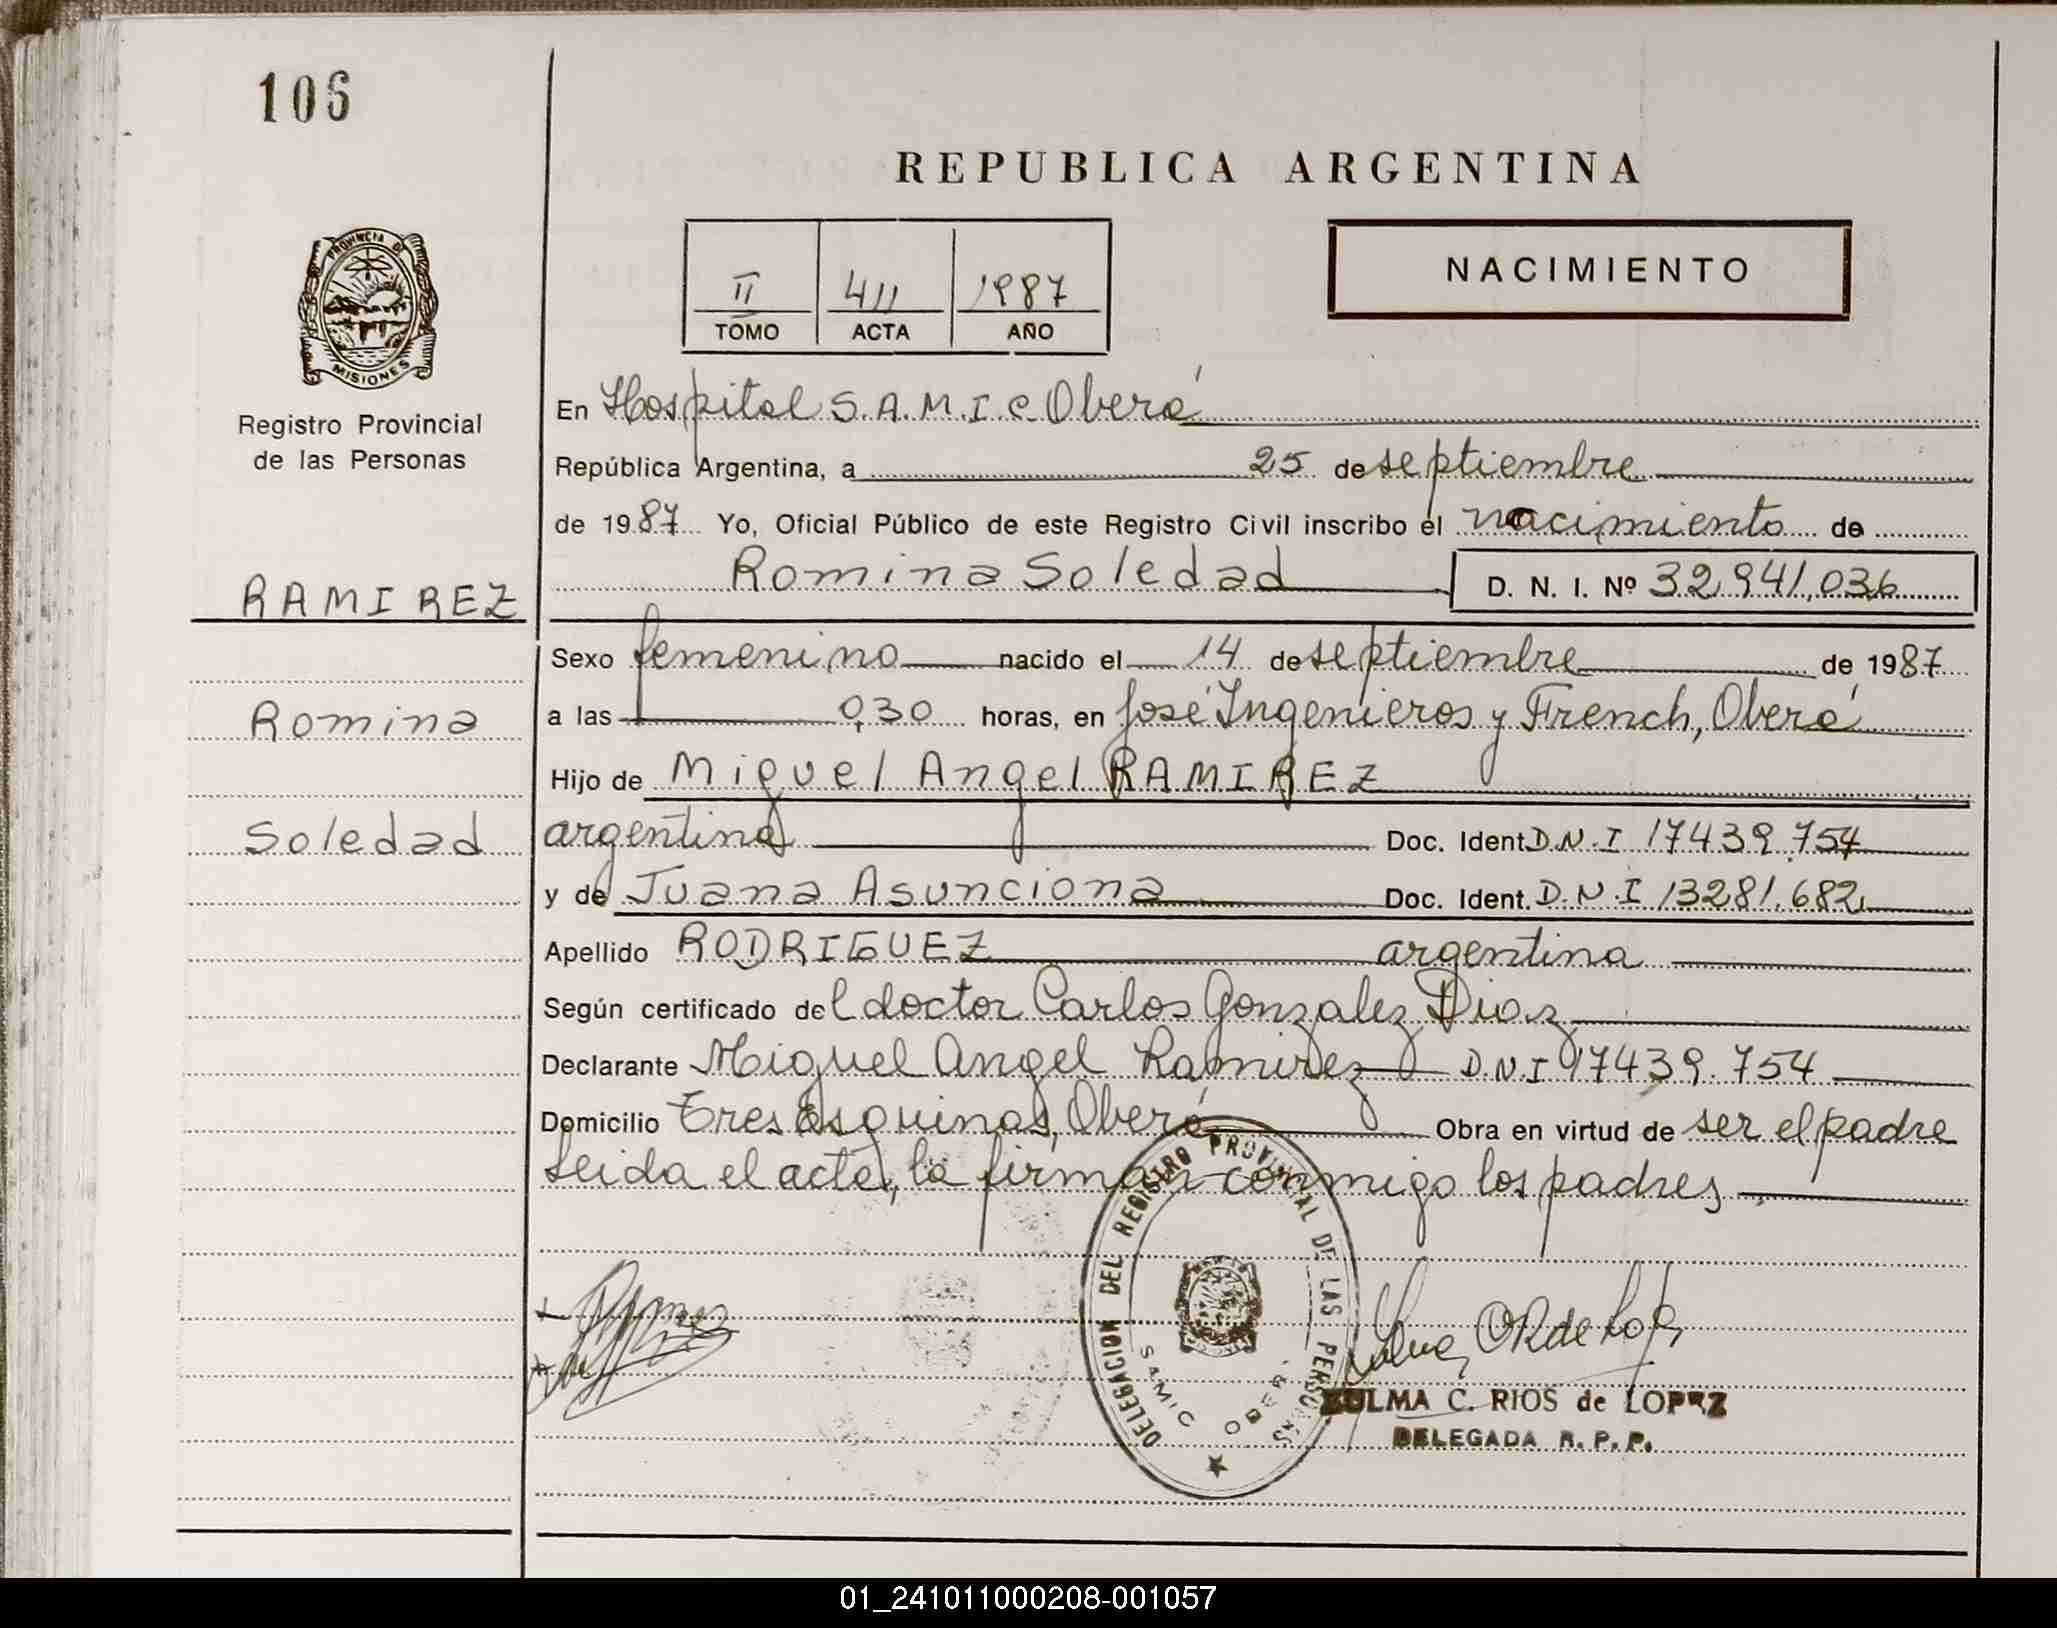 106
REPUBLICA ARGENTINA
PROVINCIA DE
MISIONES
Registro Provincial
de las Personas
II 411 1987
TOMO ACTA AÑO
NACIMIENTO
En Hospital S.A.M.I.C. Oberá
República Argentina, a 25 de septiembre
de 1987 Yo, Oficial Público de este Registro Civil inscribo el nacimiento de
Romina Soledad D. N. I. Nº 32.941.036
RAMIREZ
Romina
Soledad
Sexo femenino nacido el 14 de septiembre de 1987
a las 0,30 horas, en José Ingenieros y French, Oberá
Hijo de Miguel Angel RAMIREZ
argentina Doc. Ident. D.N.I 17439.754
y de Juana Asunciona Doc. Ident. D.N.I 13281.682
Apellido RODRIGUEZ argentina
Según certificado del doctor Carlos Gonzalez Diaz
Declarante Miguel Angel Ramirez D.N.I 17439.754
Domicilio Tres Esquinas, Oberá Obra en virtud de ser el padre
Leida el acta, la firman conmigo los padres
DELEGACION DEL REGISTRO PROVINCIAL DE LAS PERSONAS
SAMIC OBERA
ZULMA C. RIOS de LOPEZ
DELEGADA R. P. P.
01_241011000208-001057